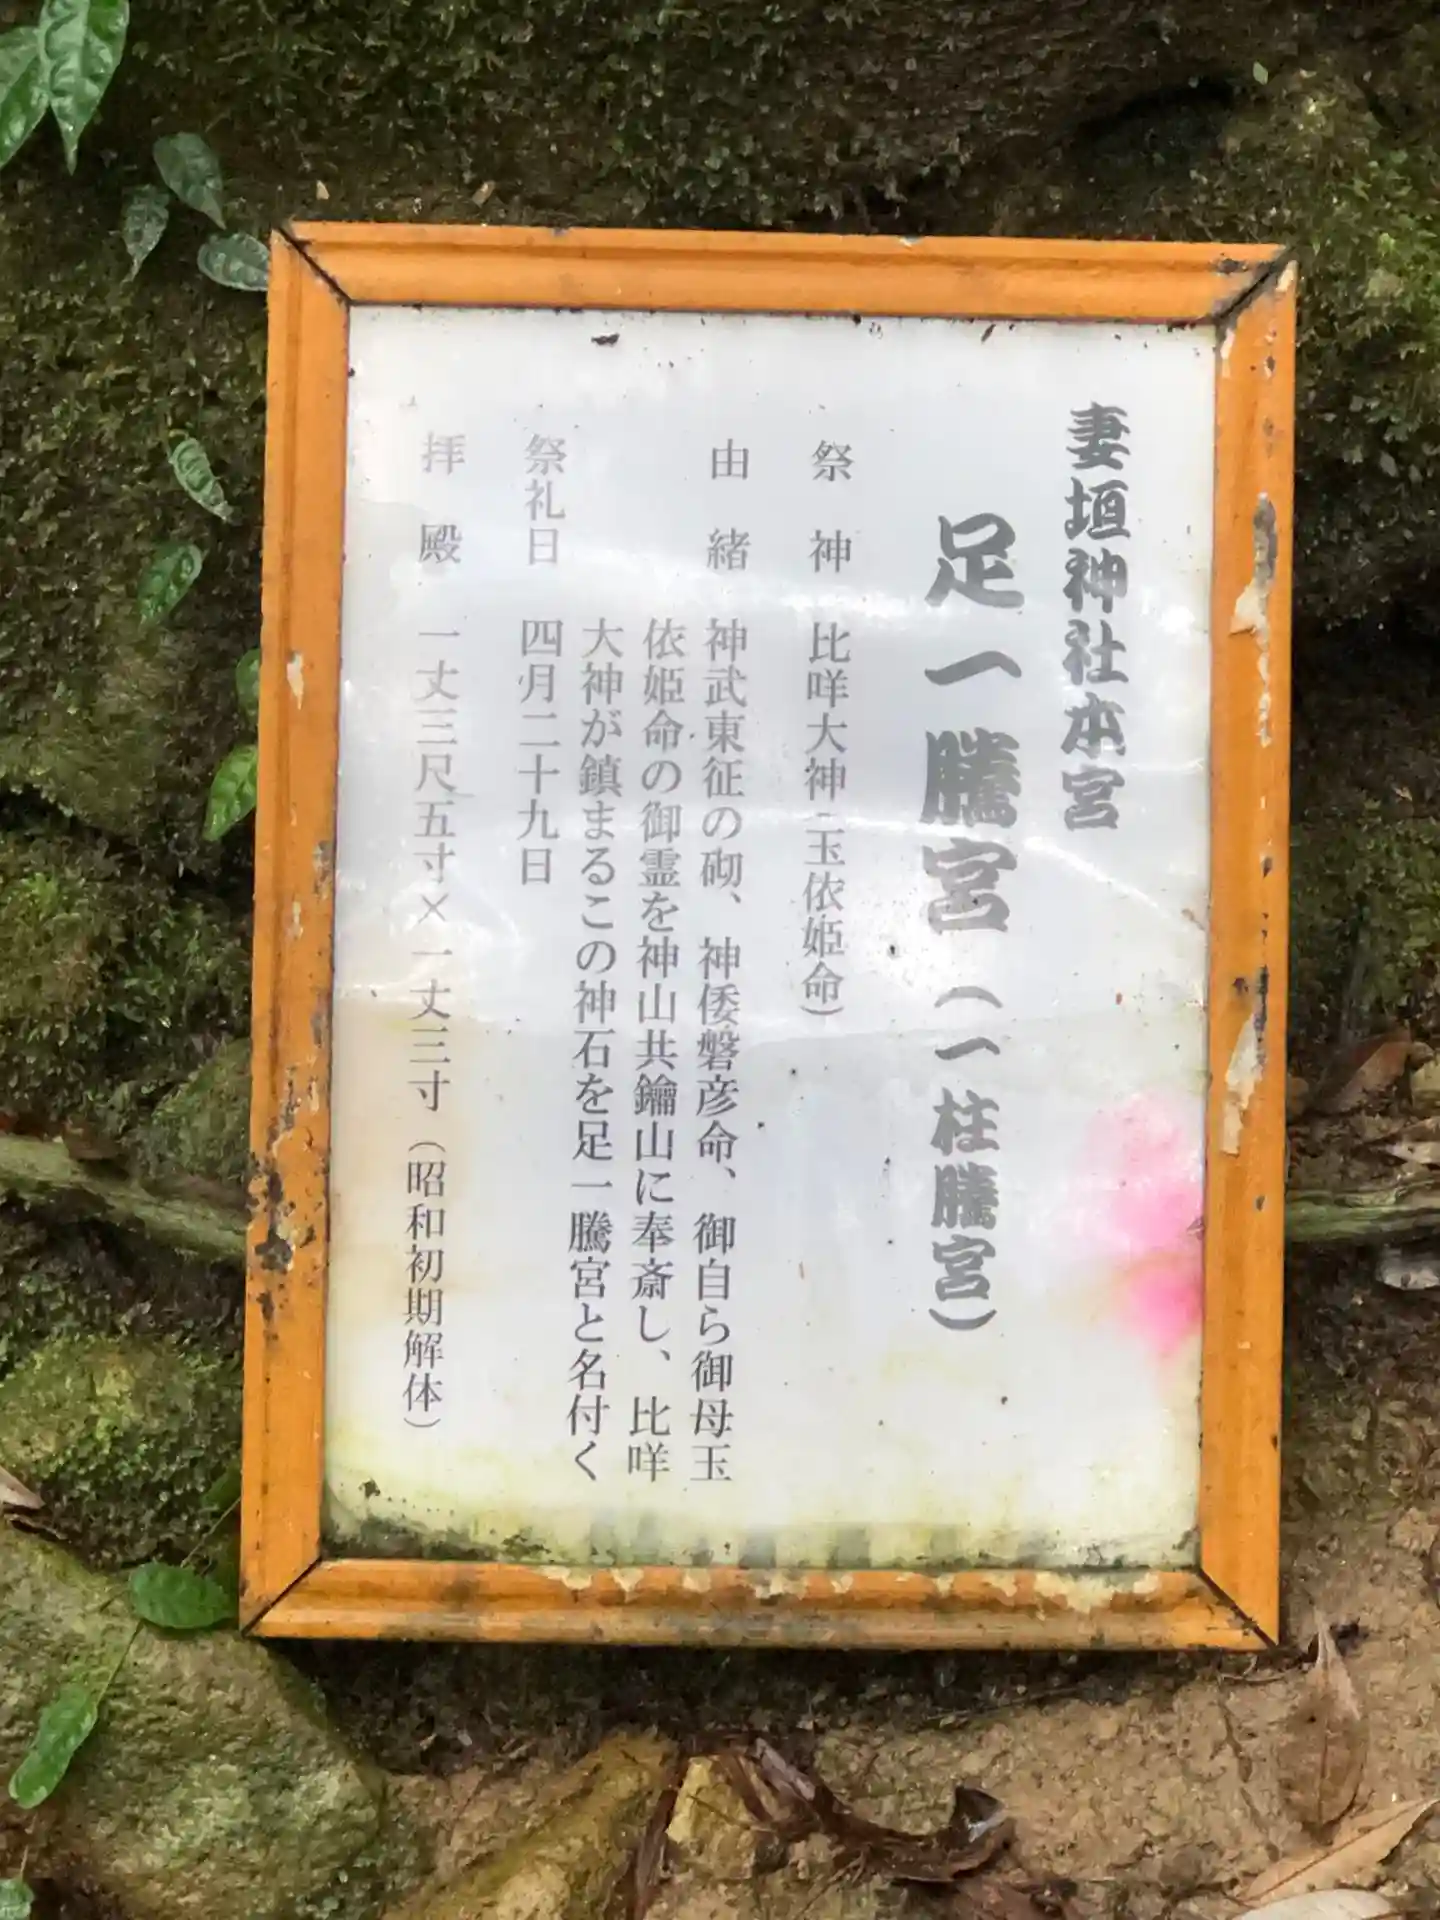 妻垣神社本宮
足一騰宮(一柱騰宮)
祭神 比咩大神(玉依姫命)
由緒 神武東征の砌、神倭磐彦命、御自ら御母玉
依姫命の御霊を神山共鑰山に奉斎し、比咩
大神が鎮まるこの神石を足一騰宮と名付く
祭礼日 四月二十九日
拝殿 一丈三尺五寸×一丈三寸(昭和初期解体)